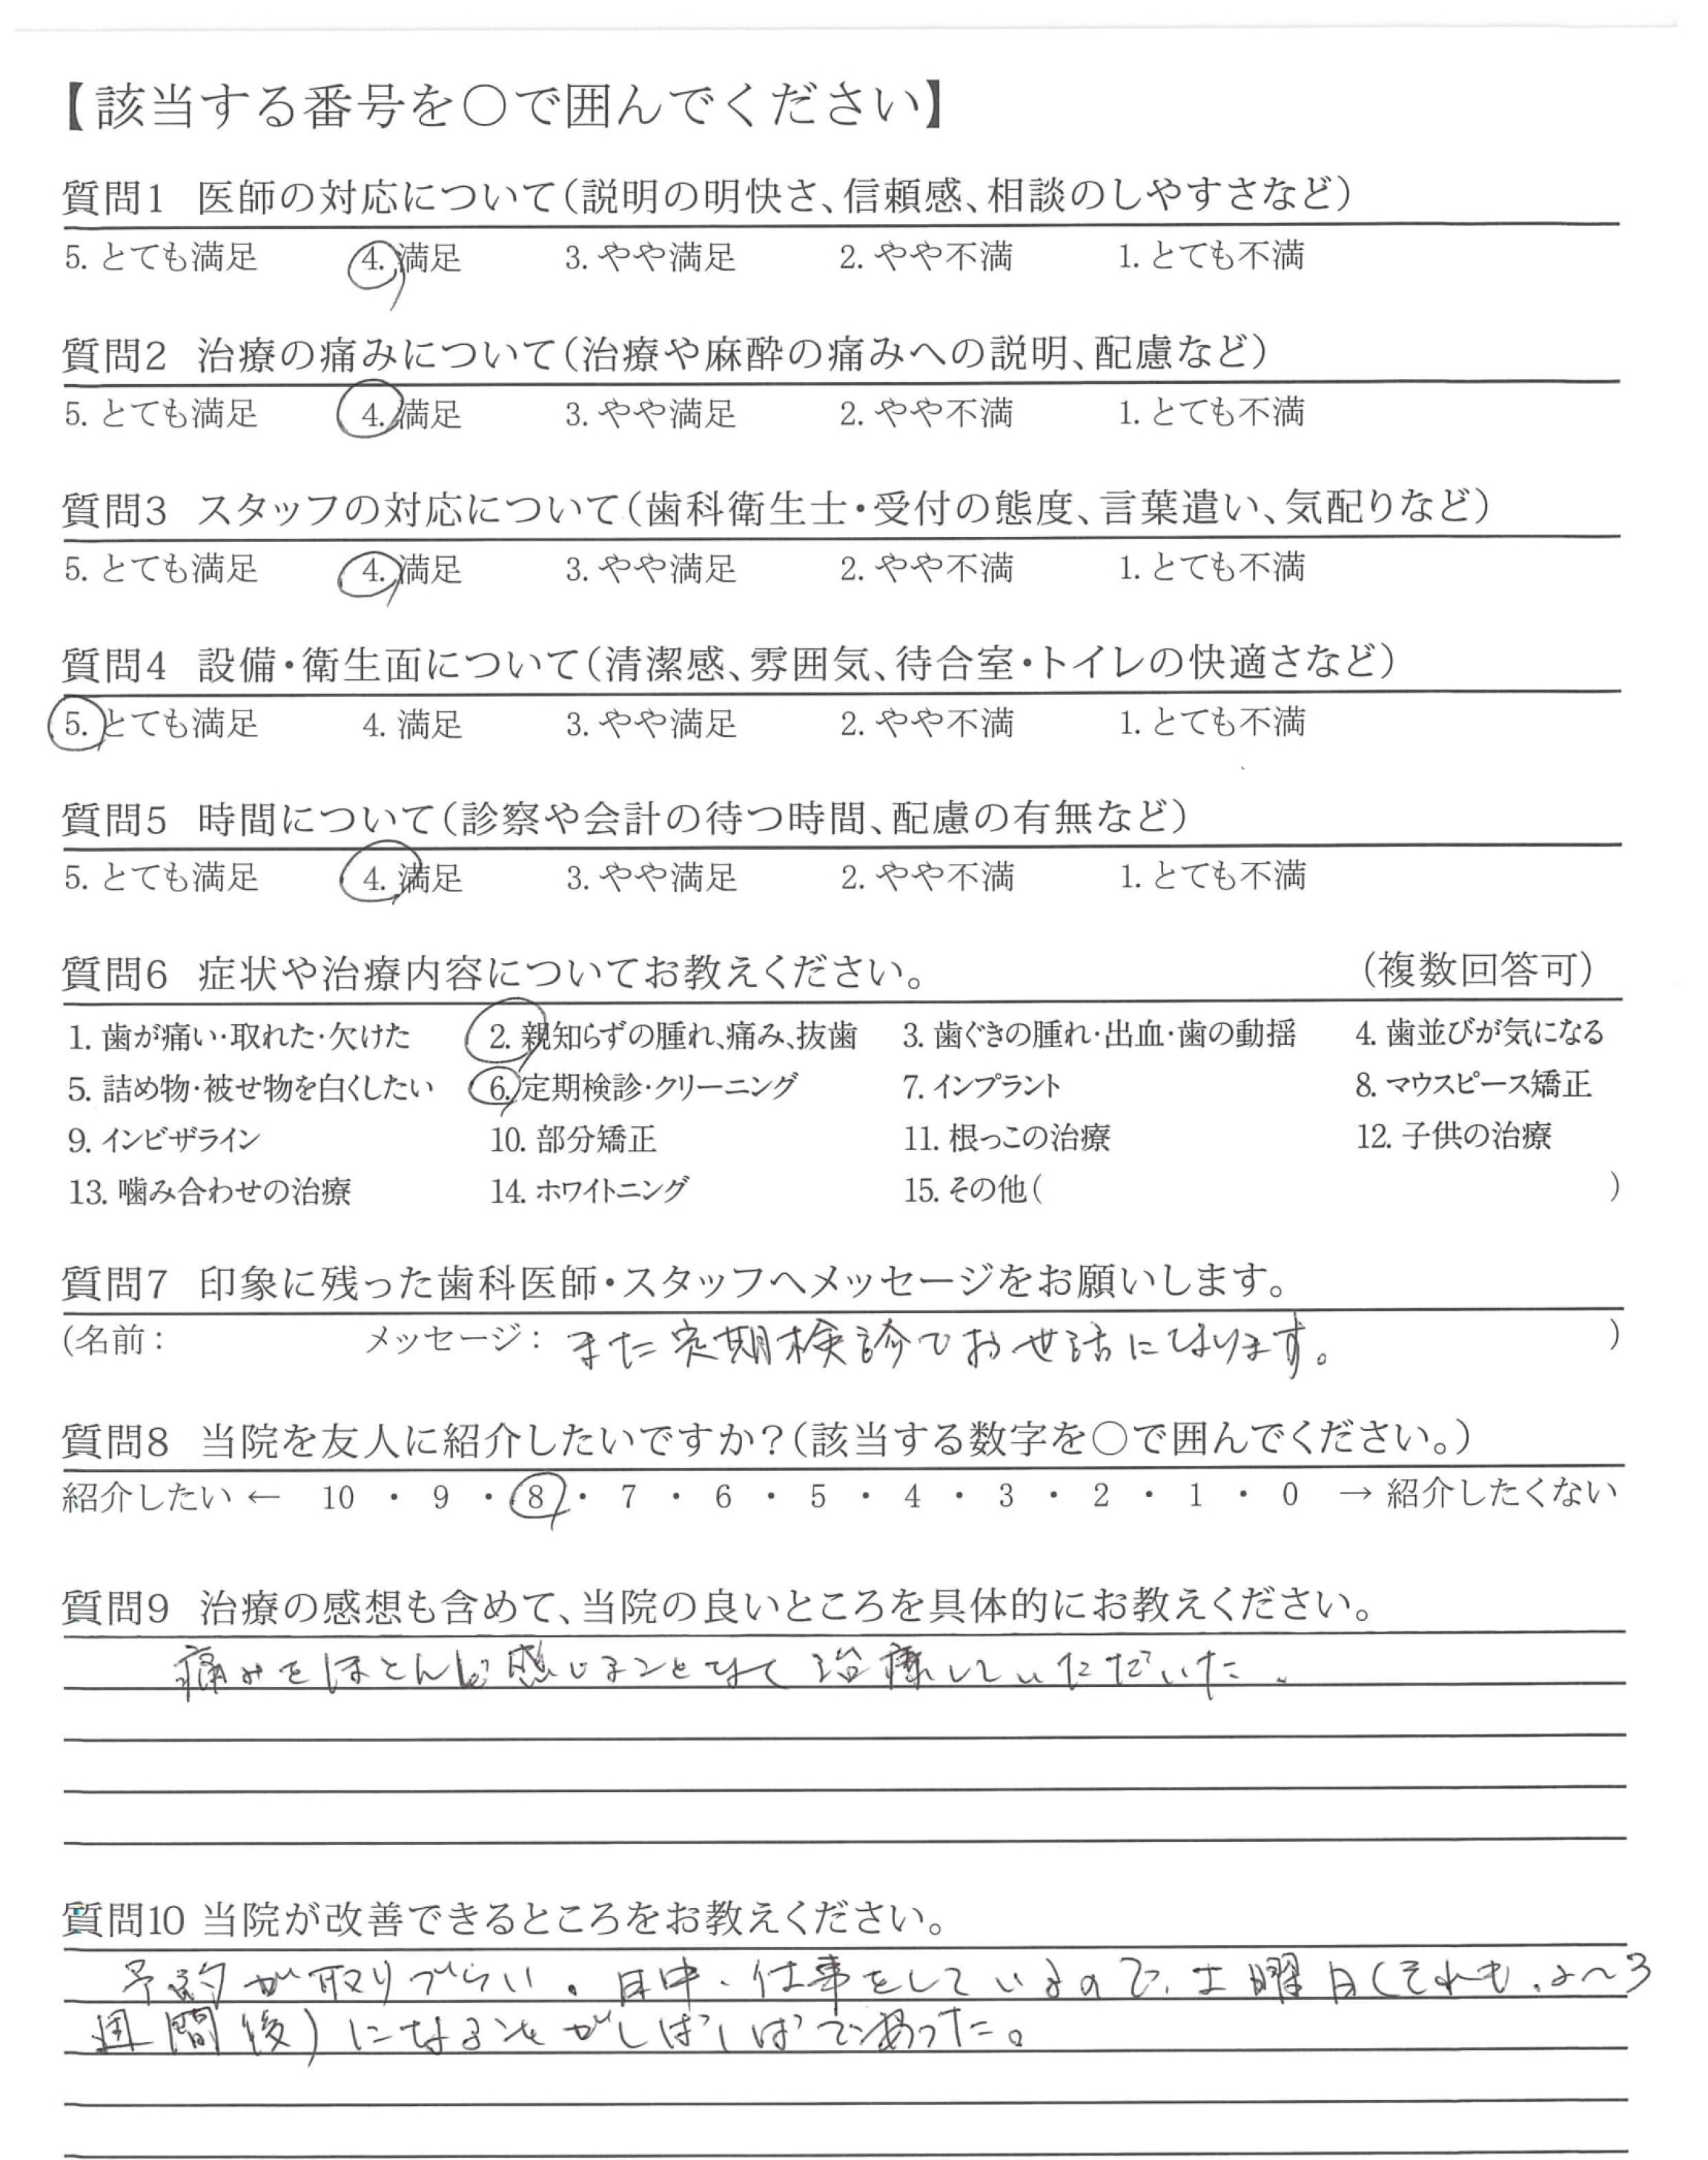 【該当する番号を〇で囲んでください】
質問1 医師の対応について(説明の明快さ、信頼感、相談のしやすさなど)
5. とても満足 4. 満足 3. やや満足 2. やや不満 1. とても不満
質問2 治療の痛みについて(治療や麻酔の痛みへの説明、配慮など)
5. とても満足 4. 満足 3. やや満足 2. やや不満 1. とても不満
質問3 スタッフの対応について(歯科衛生士・受付の態度、言葉遣い、気配りなど)
5. とても満足 4. 満足 3. やや満足 2. やや不満 1. とても不満
質問4 設備・衛生面について(清潔感、雰囲気、待合室・トイレの快適さなど)
5. とても満足 4. 満足 3. やや満足 2. やや不満 1. とても不満
質問5 時間について(診察や会計の待つ時間、配慮の有無など)
5. とても満足 4. 満足 3. やや満足 2. やや不満 1. とても不満
質問6 症状や治療内容についてお教えください。 (複数回答可)
1. 歯が痛い・取れた・欠けた 2. 親知らずの腫れ、痛み、抜歯 3. 歯ぐきの腫れ・出血・歯の動揺 4. 歯並びが気になる
5. 詰め物・被せ物を白くしたい 6. 定期検診・クリーニング 7. インプラント 8. マウスピース矯正
9. インビザライン 10. 部分矯正 11. 根っこの治療 12. 子供の治療
13. 噛み合わせの治療 14. ホワイトニング 15. その他( )
質問7 印象に残った歯科医師・スタッフへメッセージをお願いします。
(名前: メッセージ: また定期検診でお世話になります。 )
質問8 当院を友人に紹介したいですか?(該当する数字を〇で囲んでください。)
紹介したい ← 10 ・ 9 ・ 8 ・ 7 ・ 6 ・ 5 ・ 4 ・ 3 ・ 2 ・ 1 ・ 0 → 紹介したくない
質問9 治療の感想も含めて、当院の良いところを具体的にお教えください。
痛みをほとんど感じることなく治療していただいた。
質問10 当院が改善できるところをお教えください。
予約が取りづらい。日中、仕事をしているので、土曜日(それも、2～3
週間後)になることがしばしばであった。